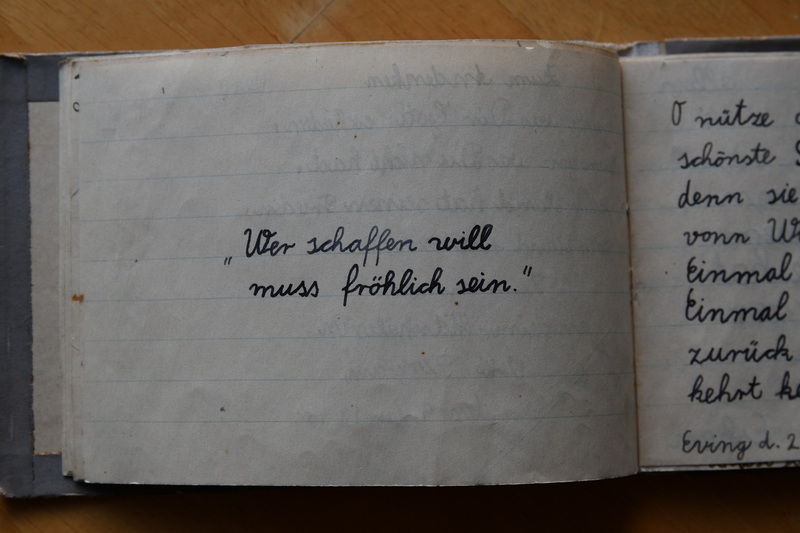 „Wer schaffen will
muss fröhlich sein."
O nütze
schönste
denn sie
vonn
Einmal
Einmal
zurück
kehrt
Eving d. 2